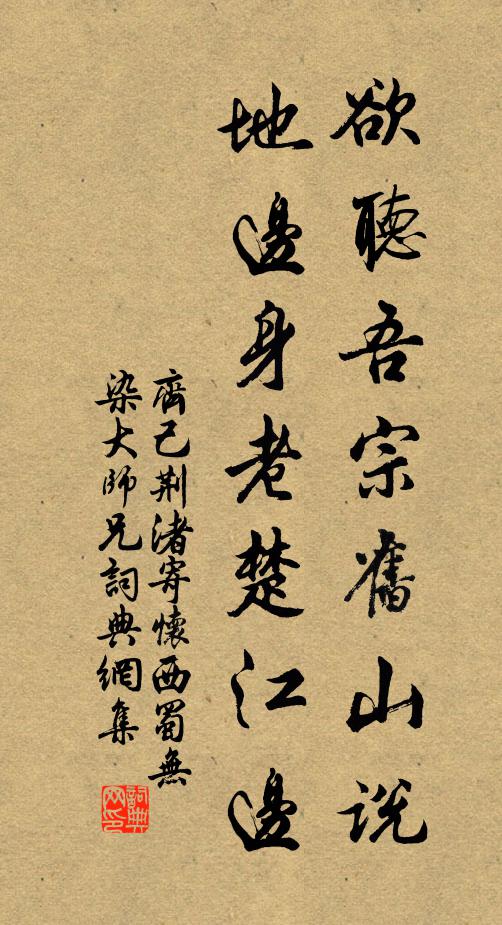 欲聽吾宗舊山說
地邊身老楚江邊
齊己荆渚寄懷西蜀無
染大師兄詞典網集
詞典
网印